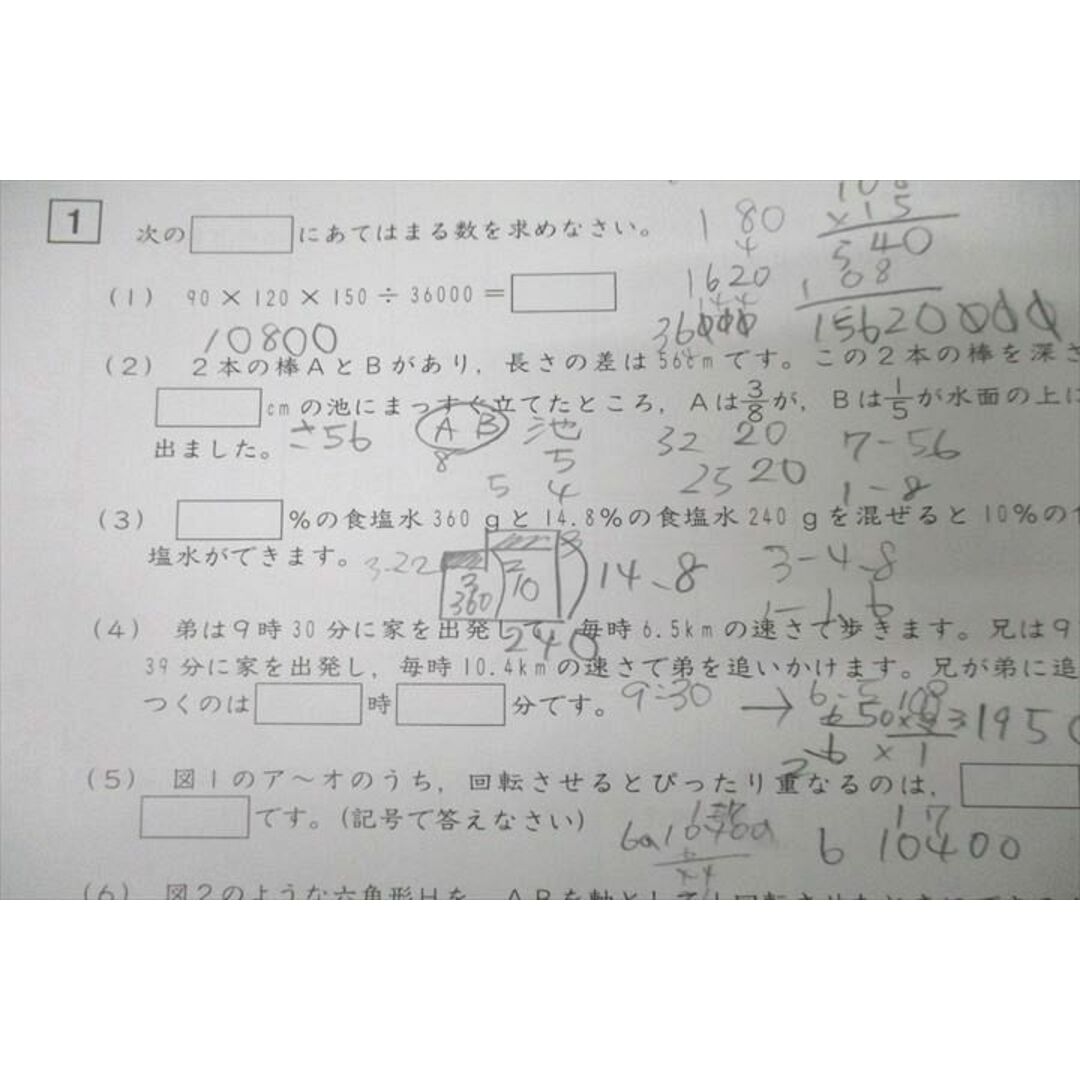 1 次の にあてはまる数を求めなさい。
180
×15
4
540
1620
108
(1) 90×120×150÷36000=
10800
36000
15620000
(2) 2本の棒AとBがあり,長さの差は56cmです。この2本の棒を深さ
cmの池にまっすぐ立てたところ,Aは3/8が,Bは1/5が水面の上に
出ました。
さ56
A B
池
32 20
7-56
8
5
25 20
5 4
1-8
(3) %の食塩水360gと14.8%の食塩水240gを混ぜると10%の
塩水ができます。
3-22
3
360
10
14.8
3-4.8
1-1.6
240
(4) 弟は9時30分に家を出発して,毎時6.5kmの速さで歩きます。兄は9
39分に家を出発し,毎時10.4kmの速さで弟を追いかけます。兄が弟に追
つくのは 時 分です。
9:30
→
1950
×1
(5) 図1のア~オのうち,回転させるとぴったり重なるのは,
です。(記号で答えなさい)
17
6 10400
(6) 図2のような六角形Hを,ABを軸として1回転させたときにできる